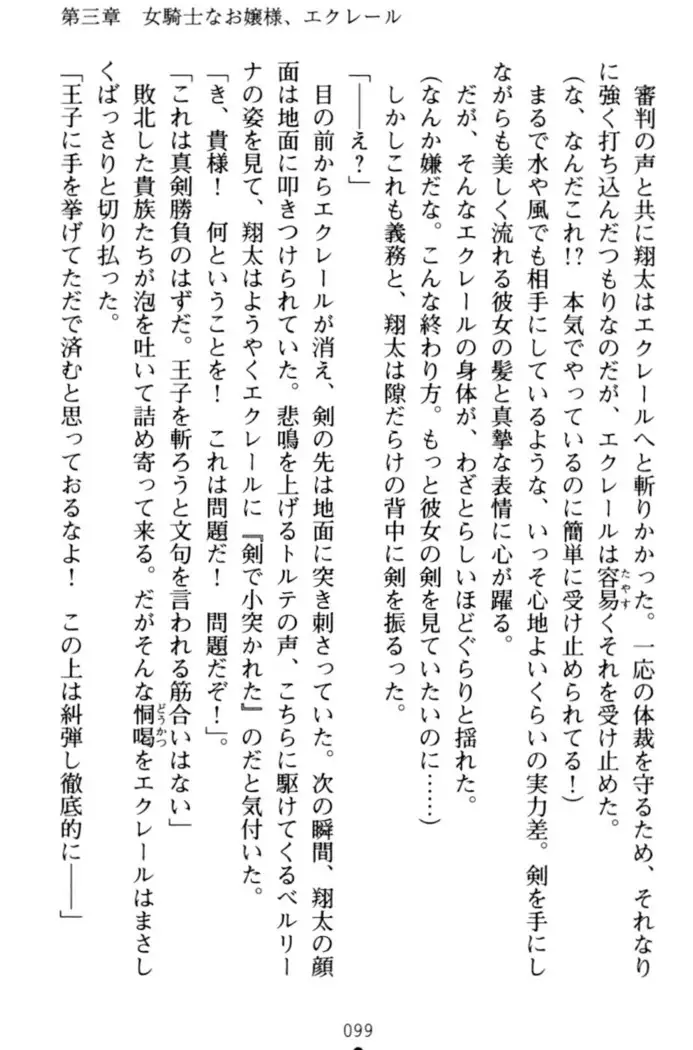 第三章　女騎士なお嬢様、エクレール
　審判の声と共に翔太はエクレールへと斬りかかった。一応の体裁を守るため、それなり
に強く打ち込んだつもりなのだが、エクレールは容易くそれを受け止めた。
たやす
（な、なんだこれ!?　本気でやっているのに簡単に受け止められてる！）
　まるで水や風でも相手にしているような、いっそ心地よいくらいの実力差。剣を手にし
ながらも美しく流れる彼女の髪と真摯な表情に心が躍る。
　だが、そんなエクレールの身体が、わざとらしいほどぐらりと揺れた。
（なんか嫌だな。こんな終わり方。もっと彼女の剣を見ていたいのに……）
　しかしこれも義務と、翔太は隙だらけの背中に剣を振るった。
「――え？」
　目の前からエクレールが消え、剣の先は地面に突き刺さっていた。次の瞬間、翔太の顔
面は地面に叩きつけられていた。悲鳴を上げるトルテの声、こちらに駆けてくるベルリー
ナの姿を見て、翔太はようやくエクレールに『剣で小突かれた』のだと気付いた。
「き、貴様！　何ということを！　これは問題だ！　問題だぞ！」。
「これは真剣勝負のはずだ。王子を斬ろうと文句を言われる筋合いはない」
　敗北した貴族たちが泡を吐いて詰め寄って来る。だがそんな恫喝をエクレールはまさし
どうかつ
くばっさりと切り払った。
「王子に手を挙げてただで済むと思っておるなよ！　この上は糾弾し徹底的に――」
099